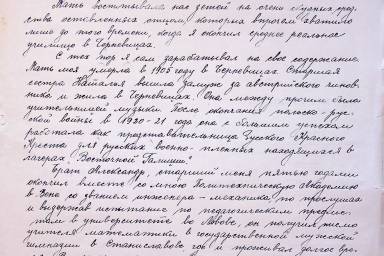 Мать воспитывала нас детей на очень скудных сред-
ства оставленных отцом, которых впрочем хватило
лишь до того времени, когда я окончил среднее реальное
училище в Черновицах.
С тех пор я сам зарабатывал на свое содержание.
Мать моя умерла в 1905 году в Черновицах. Старшая
сестра Наталья вышла замуж за австрийского чинов-
ника и жила в Черновицах. Она между прочим была
учительницей музыки. После окончания польско-рус-
ской войны в 1920-21 года она с большим успехом
работала как представительница Русского Красного
Креста для русских военно-пленных находящихся в
лагерях "Восточной Галиции".
Брат Александр, старший меня пятью годами
окончил вместе со мною Политехническую Академию
в Вене со званием инженера-механика по прослушании
и выдержав испытание по педагогическим предме-
там в университете во Львове, он получил место
учителя математики в государственной мужской
гимназии в Станиславове год и проживал долгое вре-